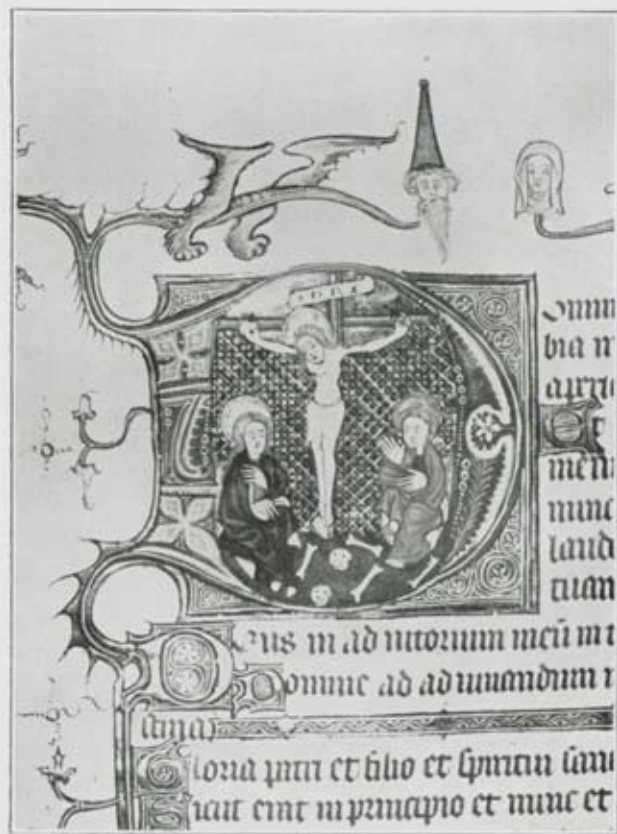 INRI
Domin
bia m
aperi
P
meum
nunc
laudi
tuam
Eus in ad iutorium meū in t
Domine ad ad iuuandum
Gloria patri et filio et spiritui san
Sicut erat in principio et nunc et